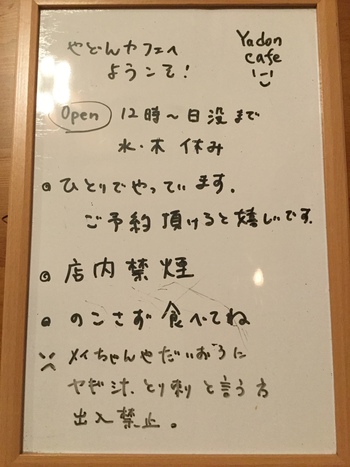 やどんカフェへ
ようこそ!
Yadon
cafe
Open 12時~日没まで
水・木 休み
ひとりでやっています.
ご予約頂けると嬉しいです.
店内禁煙
のこさず食べてね
メイちゃんやだいおうに
ヤギ汁、とり刺と言う方
出入禁止。